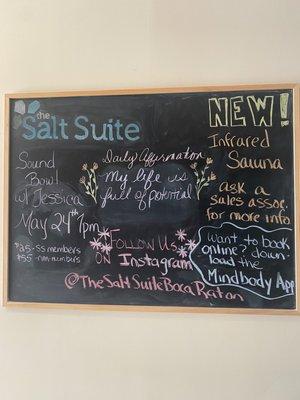 the
Salt Suite
Sound
Bowl
w/ Jessica
May 24th 7pm
$25-SS members
$55-non-members
Daily Affirmation
my life is
full of potential
Follow us
on Instagram
@TheSaltSuiteBocaRaton
NEW!
Infrared
Sauna
ask a
sales assoc.
for more info
Want to book
online? down-
load the
Mindbody App